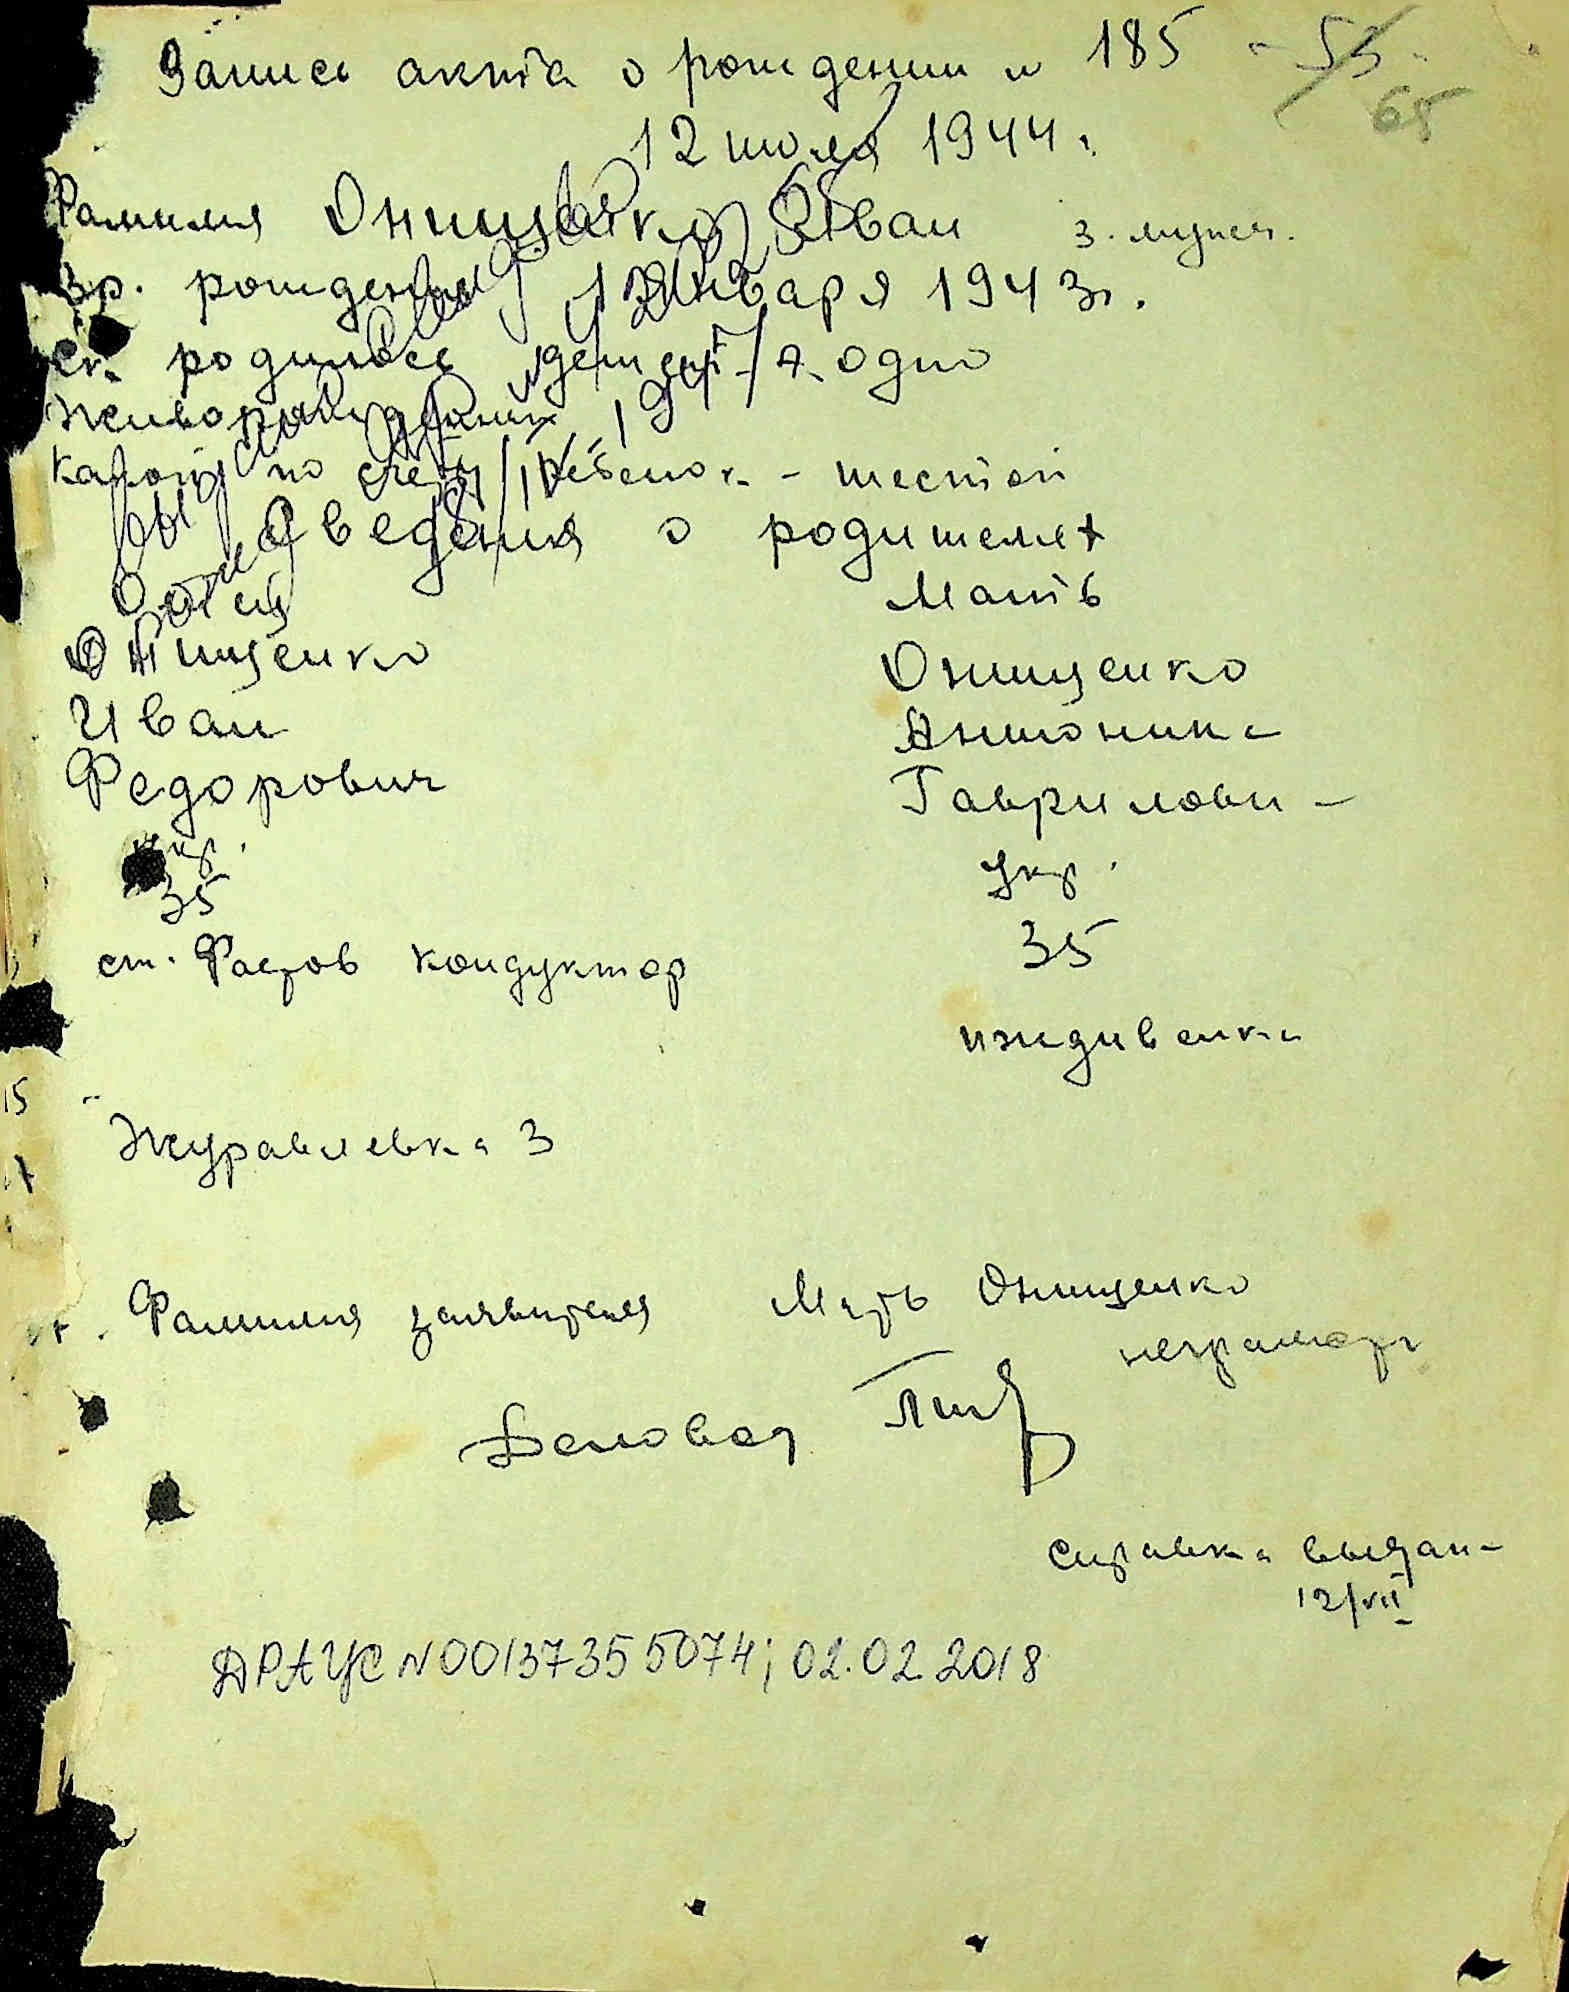 Запись акта о рождении N 185 - 53
65
12 июля 1944 г.
Фамилия Онищенко Иван 3. мужск.
Вр. рождения 1 января 1943 г.
Ск. родилось детей - 1 А. одно
Живорожденных
Какой по счету ребенок - шестой
Сведения о родителях
Отец Мать
Онищенко Онищенко
Иван Антонина
Федорович Гаврилови -
укр. Укр.
35 35
ст. Фастов кондуктор
иждивенка
15
Журавлевка 3
Фамилия заявителя Мать Онищенко
неграмотн
Деловод
Справка выдан -
12/VII
ДРАЦС N 00137355074; 02.02.2018